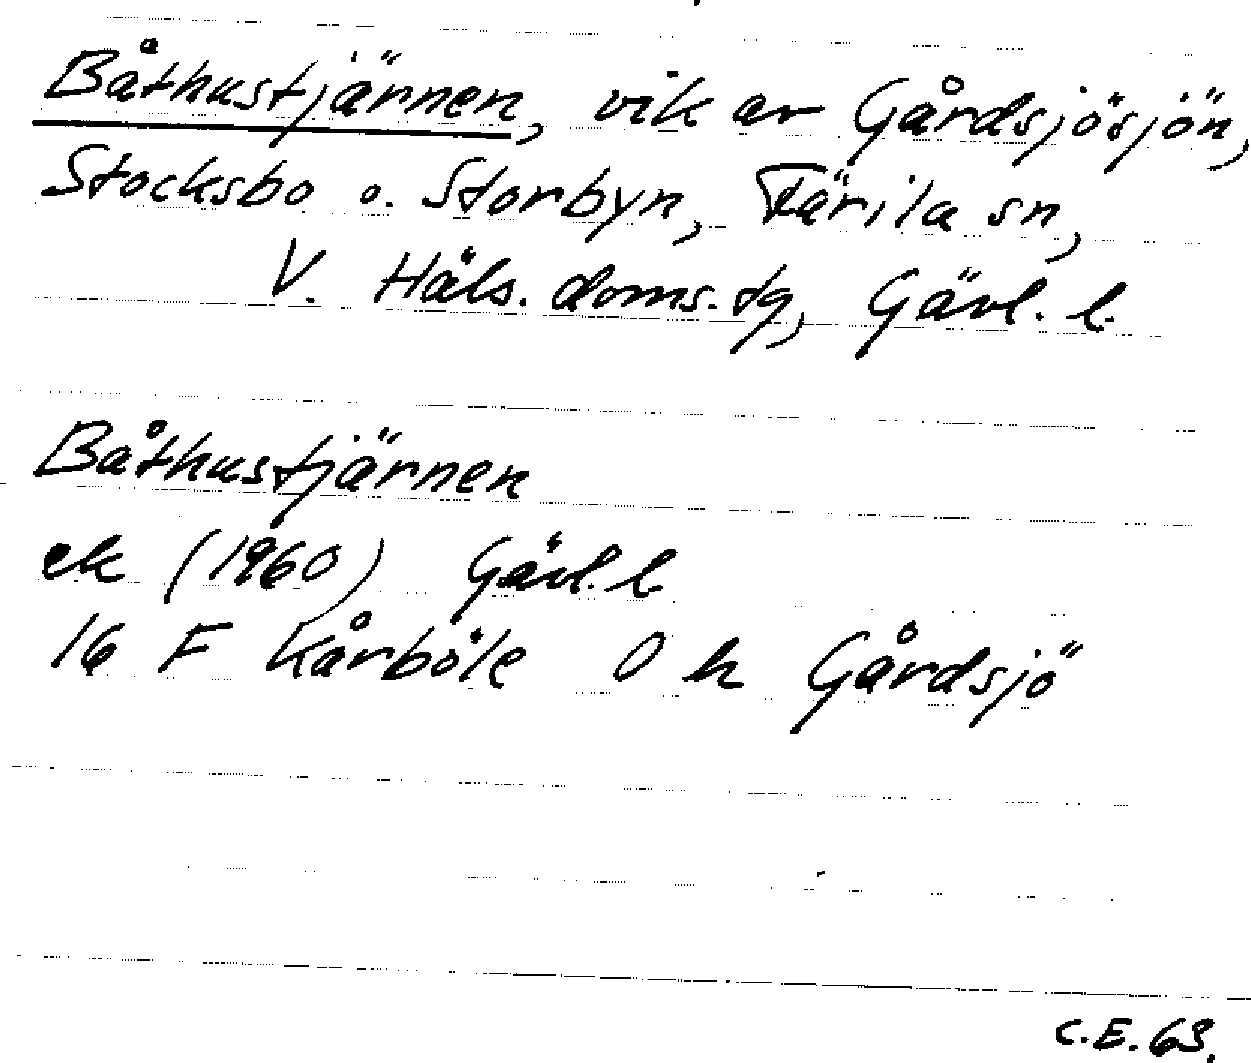 Båthustjärnen, vik av Gårdsjösjön,
Stocksbo o. Storbyn, Färila sn,
V. Häls. doms.tg, Gävl. l.
Båthustjärnen
ek (1960) Gävl. l.
16 F Kårböle O h Gårdsjö
C.E. 63.